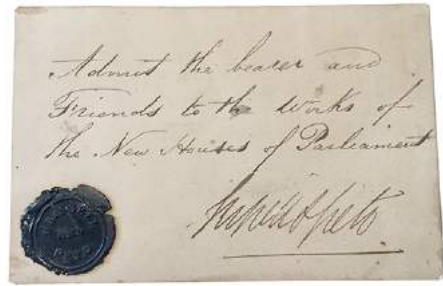 Admit the bearer and
Friends to the Works of
the New Houses of Parliament